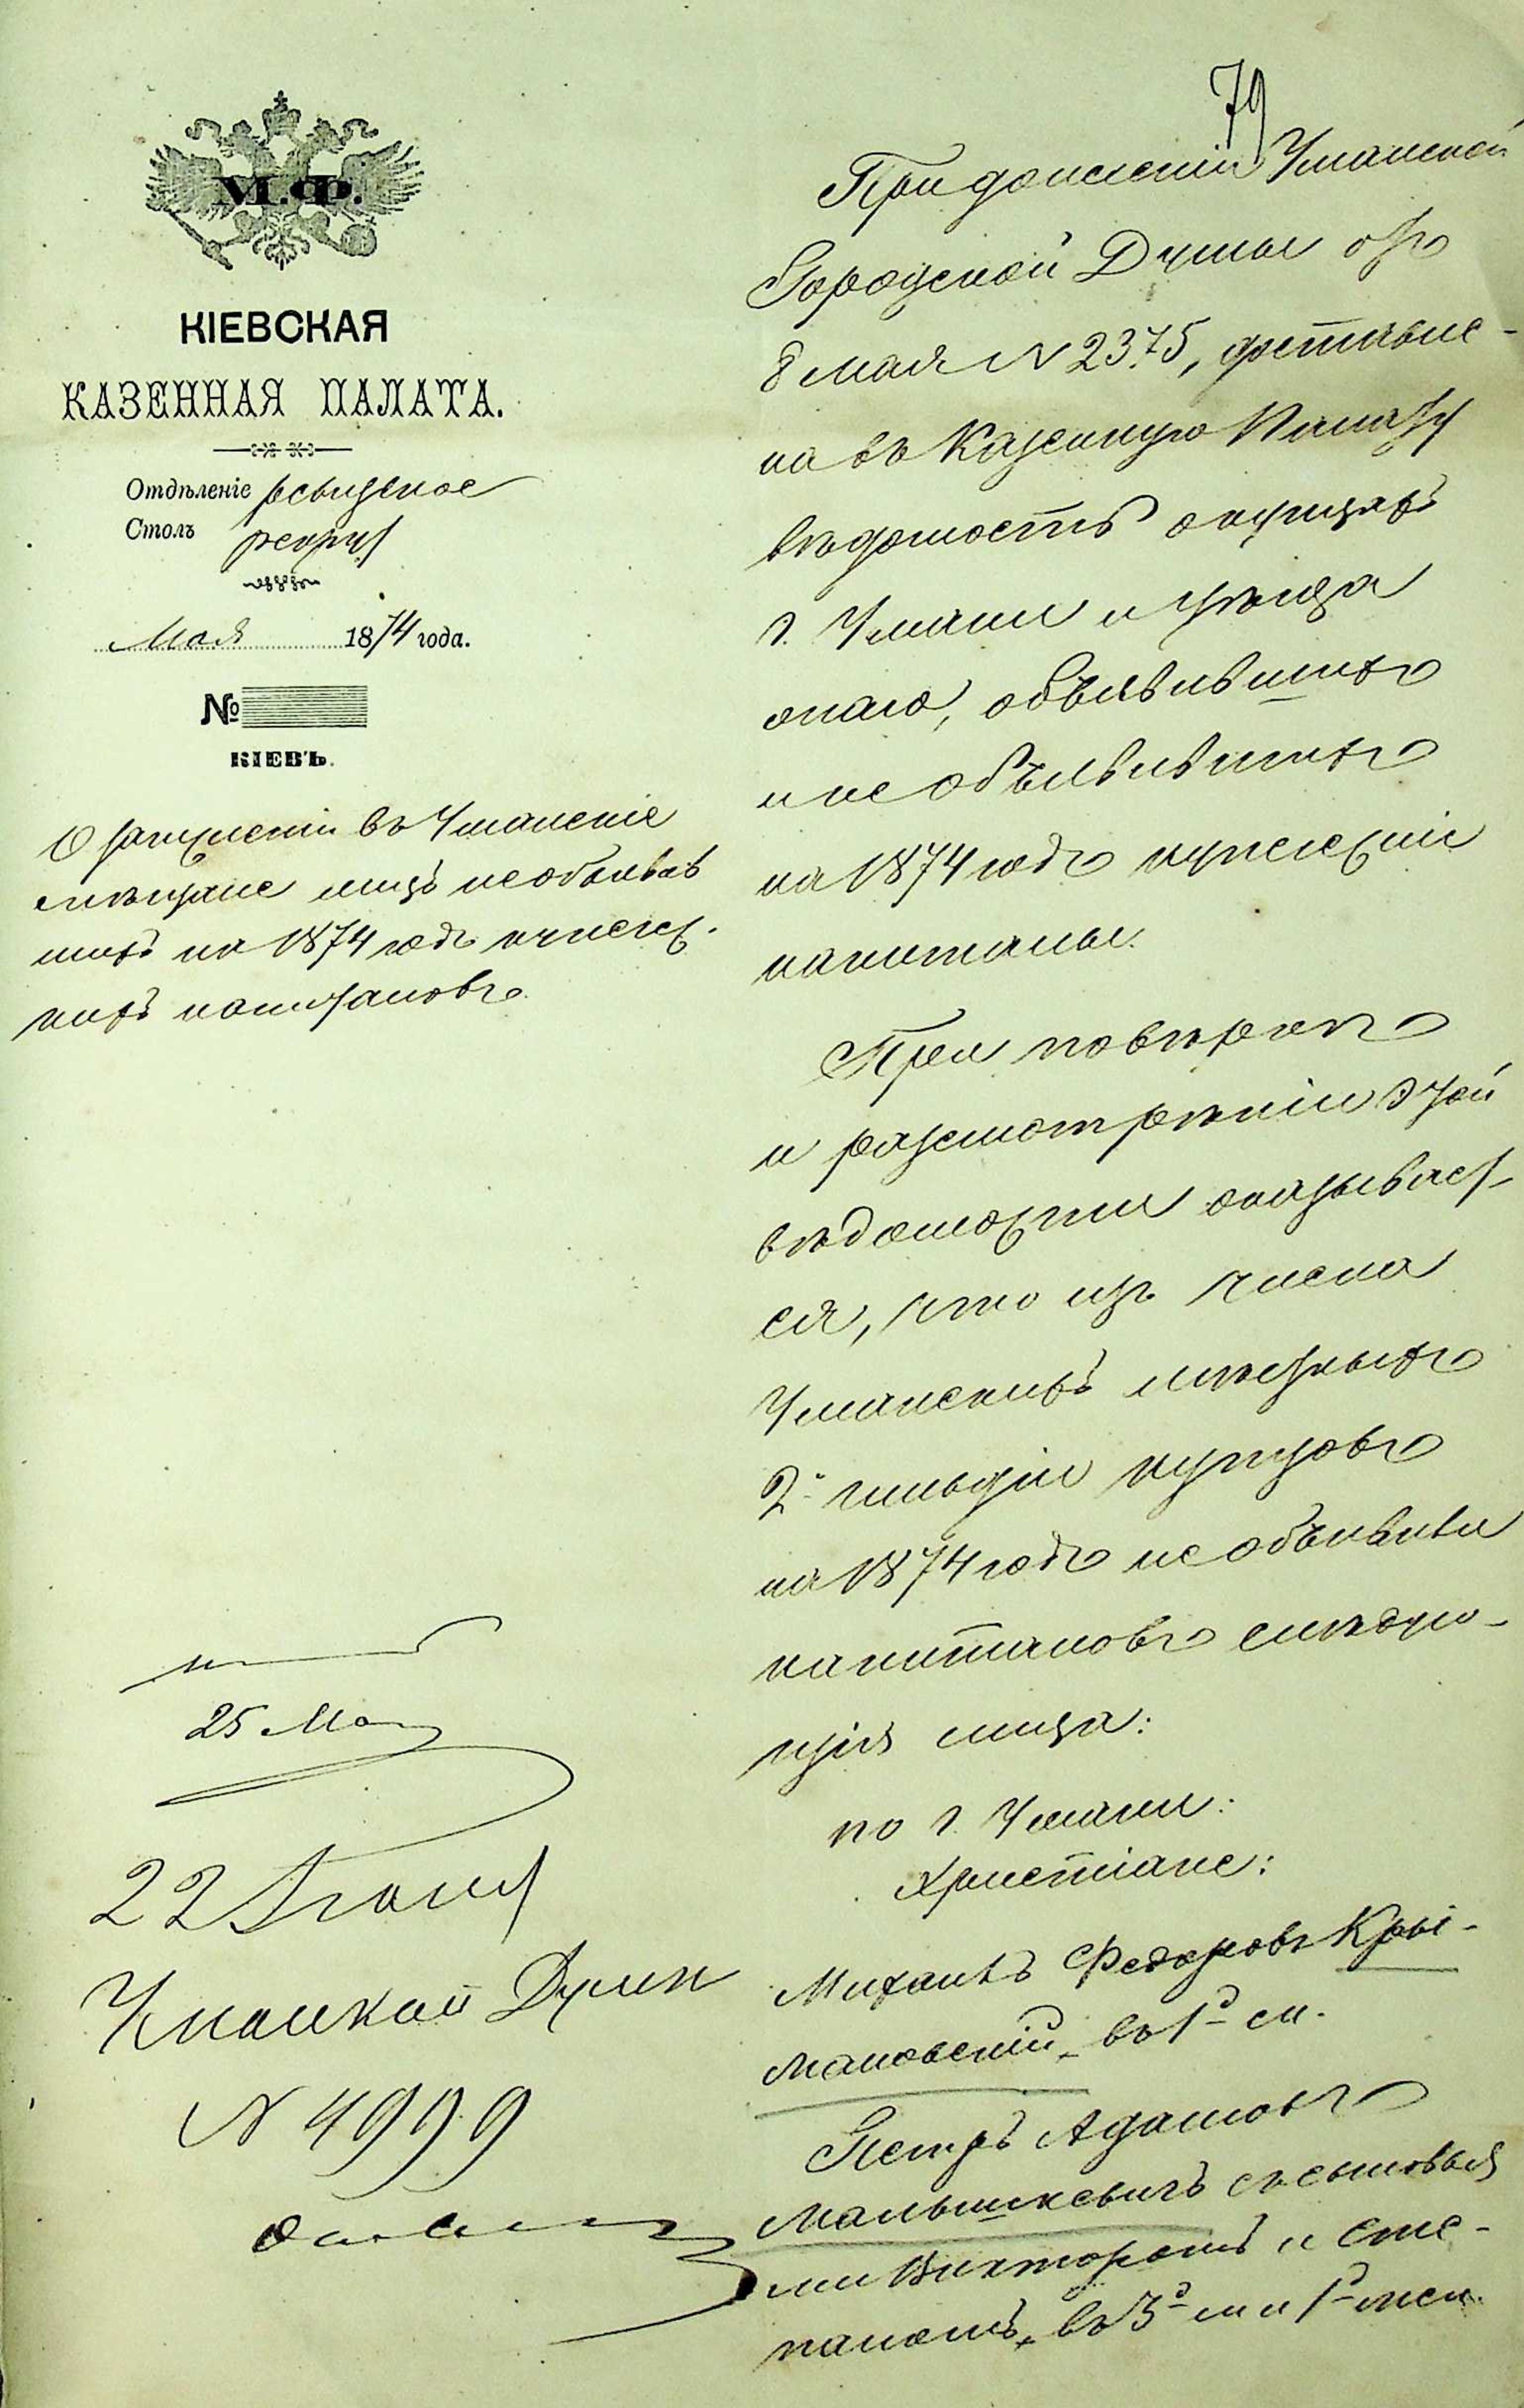 79
М.Ф.
КІЕВСКАЯ
КАЗЕННАЯ ПАЛАТА.
Отдѣленіе ревизское
Столъ рекрут
Мая 1874 года.
№
КІЕВЪ.
О зачисленіи въ Уманскіе
мѣщане лицъ необъявив
шихъ на 1874 годъ купечес.
кихъ капиталовъ.
25 Мая
22 Іюня
Уманской Думѣ
N 4999
При донесеніи Уманской
Городской Думы отъ
8 мая N 2375, доставле-
на въ Казенную Палату
вѣдомость о купцахъ
г. Умани и уѣзда
онаго, объявившихъ
и не объявившихъ
на 1874 годъ купеческіе
капиталы.
При повѣркѣ
и разсмотрѣніи этой
вѣдомости оказывает-
ся, что изъ числа
Уманскихъ мѣстныхъ
2й гильдіи купцовъ
на 1874 годъ не объявили
капиталовъ слѣдую-
щія лица:
по г. Умани:
Христіане:
Михаилъ Федоровъ Кры-
мановскій, въ 1д см.
Петръ Адамовъ
Малышкевичъ съ сыновья
ми Викторомъ и Сте-
паномъ, въ 3д м и 1д жен.